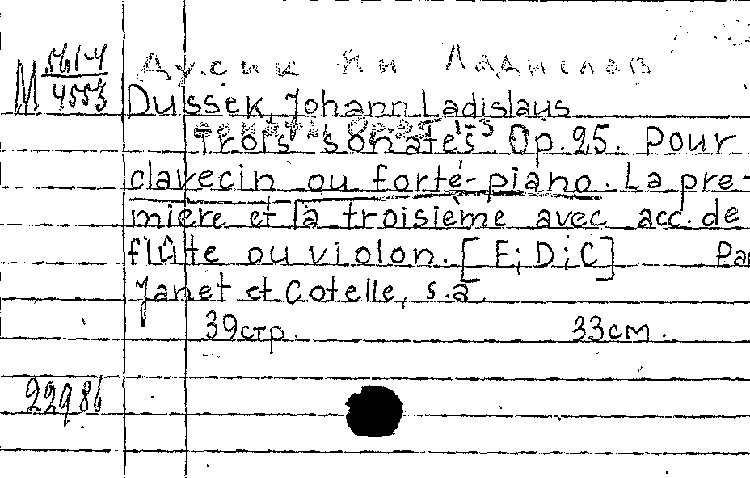 М 561-4
4553
Дусик Ян Ладислав
Dussek, Johann Ladislaus
Trois sonates Op.25. Pour
clavecin ou forté-piano. La pre-
mière et la troisième avec acc. de
flûte ou violon. [E; D; C] Par
Janet et Cotelle, s.a.
39стр. 33см.
22986